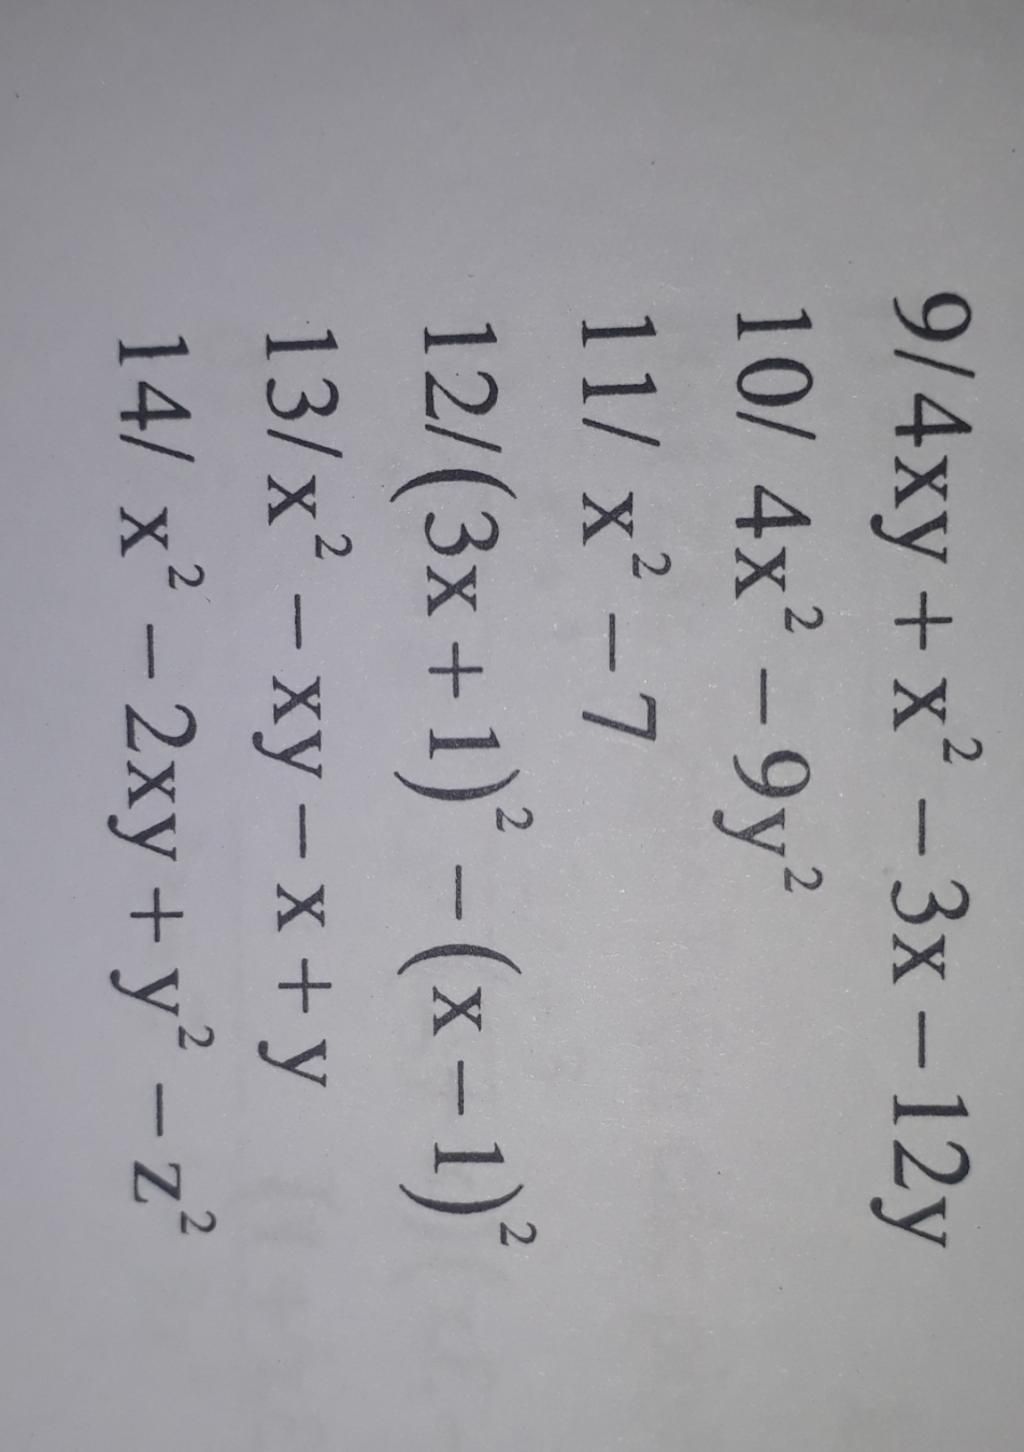 9/4xy + x² – 3x – 12y
10/ 4x² – 9y²
11/ x² – 7
12/(3x + 1)² – (x – 1)²
13/x² – xy – x + y
14/ x² – 2xy + y² – z²